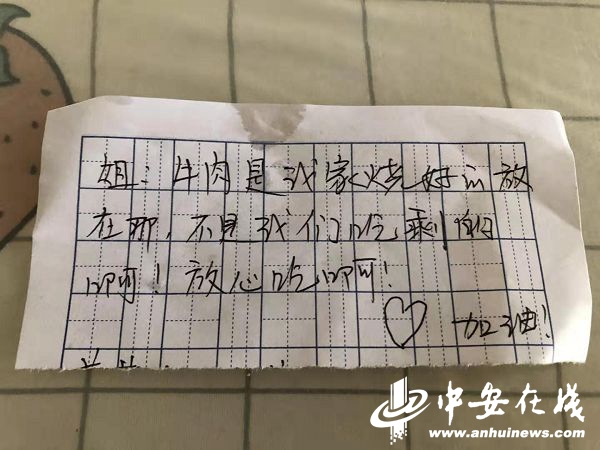 姐：牛肉是我家烧好的放
在那，不是我们吃剩的
啊！放心吃啊！
♡ 加油！
中安在线
www.anhuinews.com